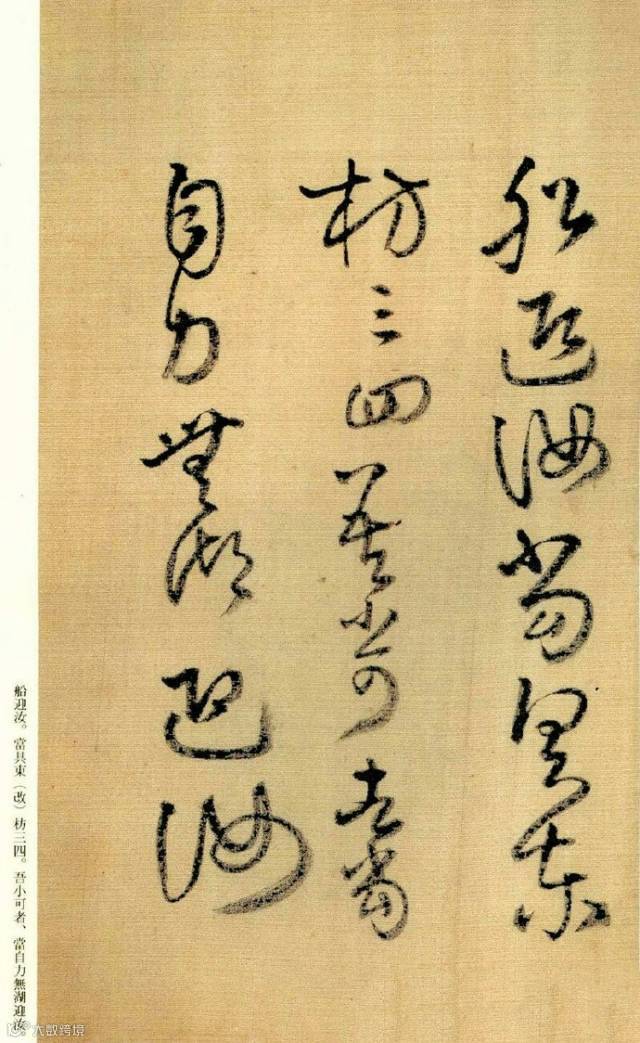 船迎汝當具東
枋三四吾小可者當
自力無湖迎汝
船迎汝。當具東（改）枋三四。吾小可者、當自力無湖迎汝。
大数跨境